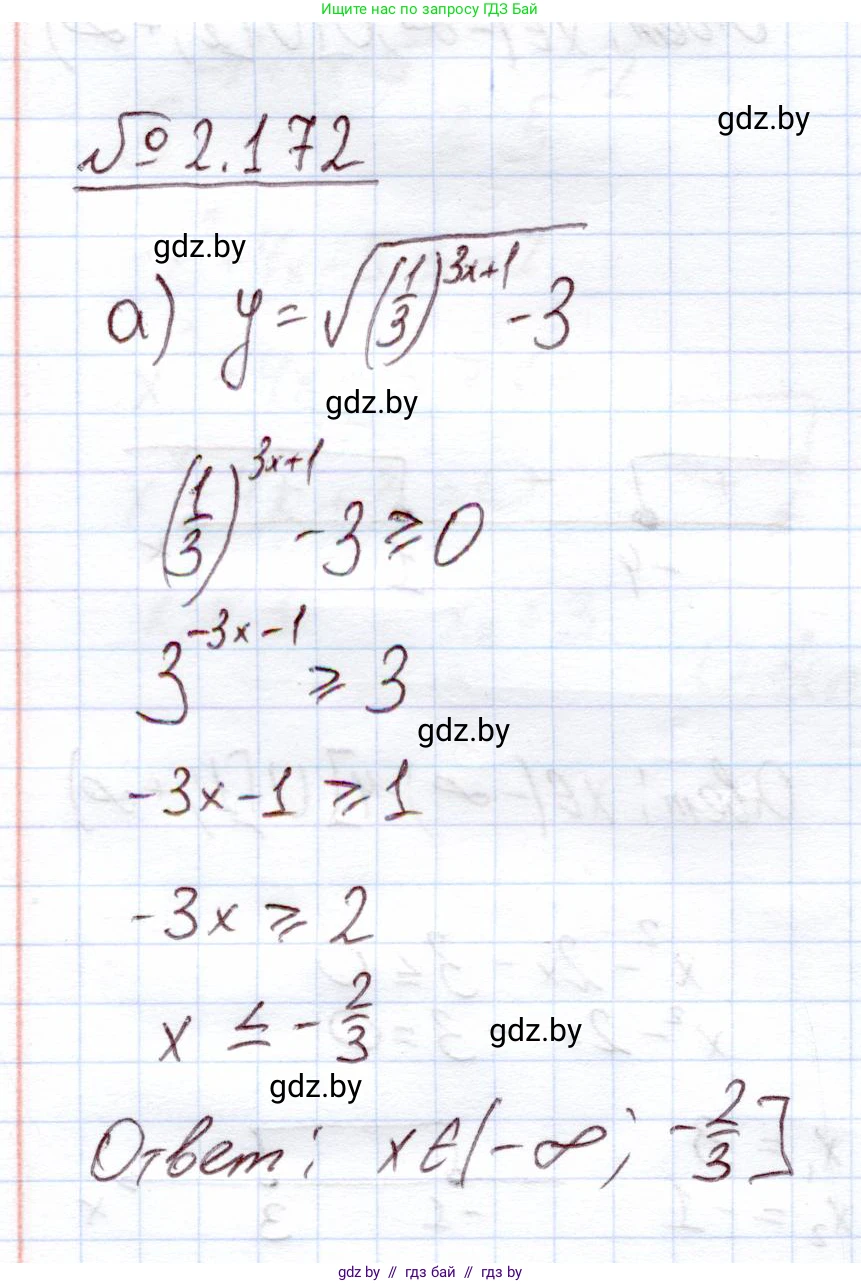 Ищите нас по запросу ГДЗ Бай
gdz.by
№ 2.172
gdz.by
а) y = √((1/3)^(3x+1) - 3)
gdz.by
(1/3)^(3x+1) - 3 ≥ 0
3^(-3x-1) ≥ 3
gdz.by
-3x-1 ≥ 1
-3x ≥ 2
x ≤ -2/3
gdz.by
gdz.by
Ответ: x∈(-∞; -2/3]
gdz.by // гдз бай // гдз by